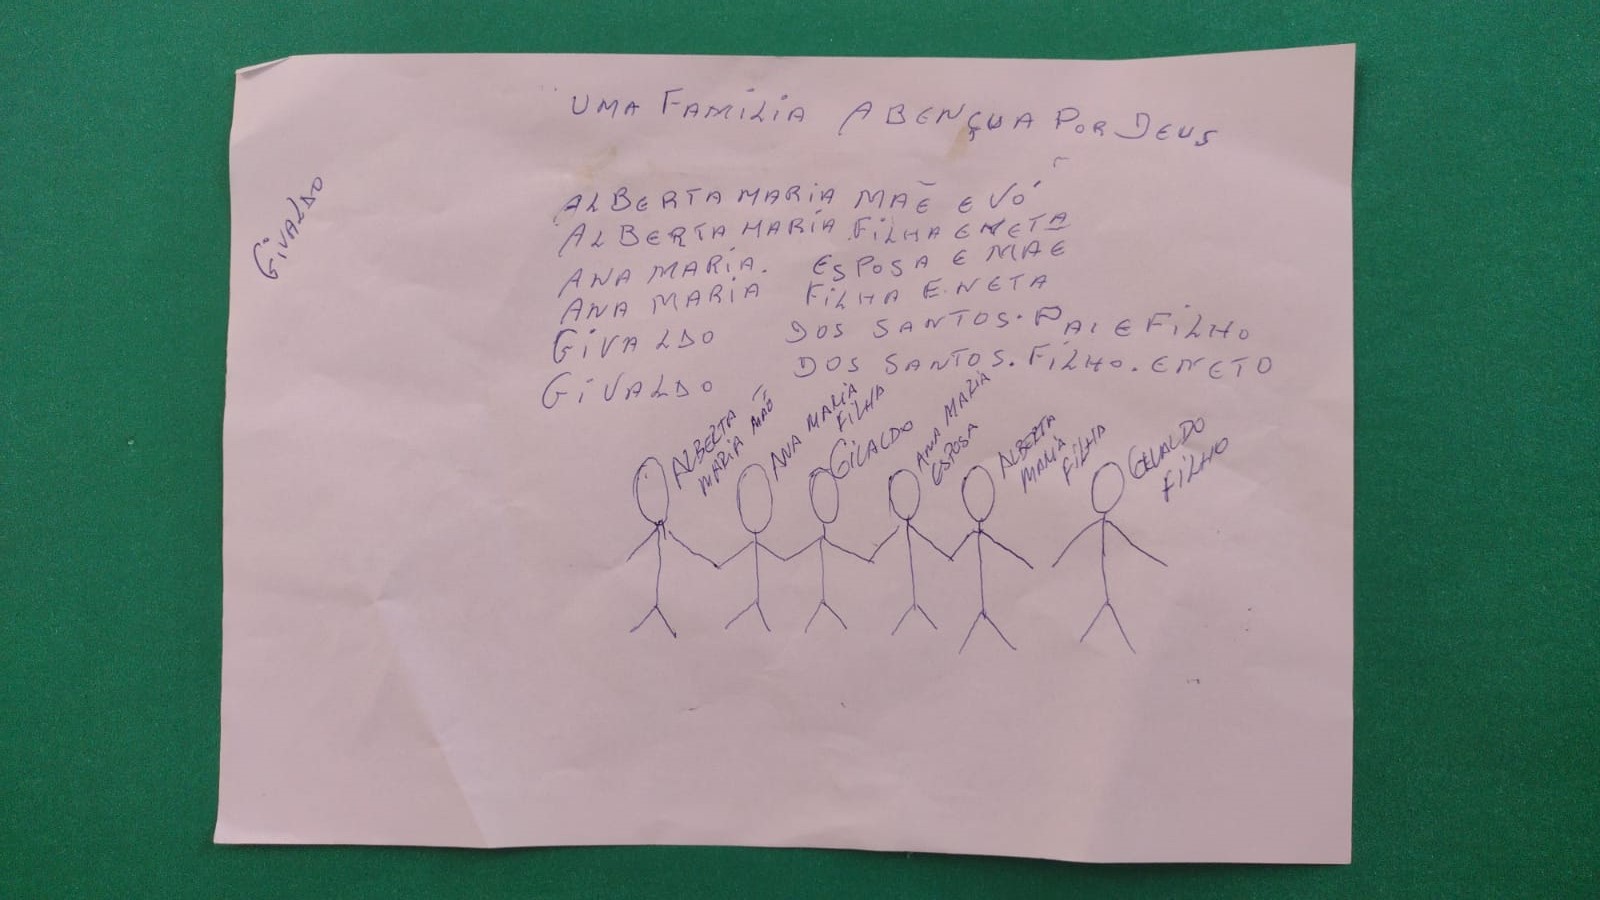 UMA FAMILIA ABENÇUA POR DEUS
GIVALDO
ALBERTA MARIA MÃE E VÓ
ALBERTA MARIA FILHA E NETA
ANA MARIA. ESPOSA E MAE
ANA MARIA FILHA E.NETA
GIVALDO DOS SANTOS. PAI E FILHO
GIVALDO DOS SANTOS. FILHO. E NETO
ALBERTA
MARIA MÃE
ANA MARIA
FILHA
GIVALDO
ANA MARIA
ESPOSA
ALBERTA
MARIA
FILHA
GIVALDO
FILHO